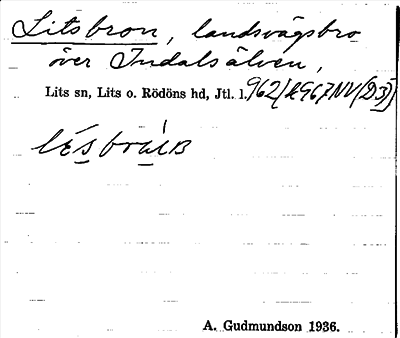 Litsbron, landsvägsbro
över Indalsälven,
Lits sn, Lits o. Rödöns hd, Jtl. 1.962
A. Gudmundson 1936.